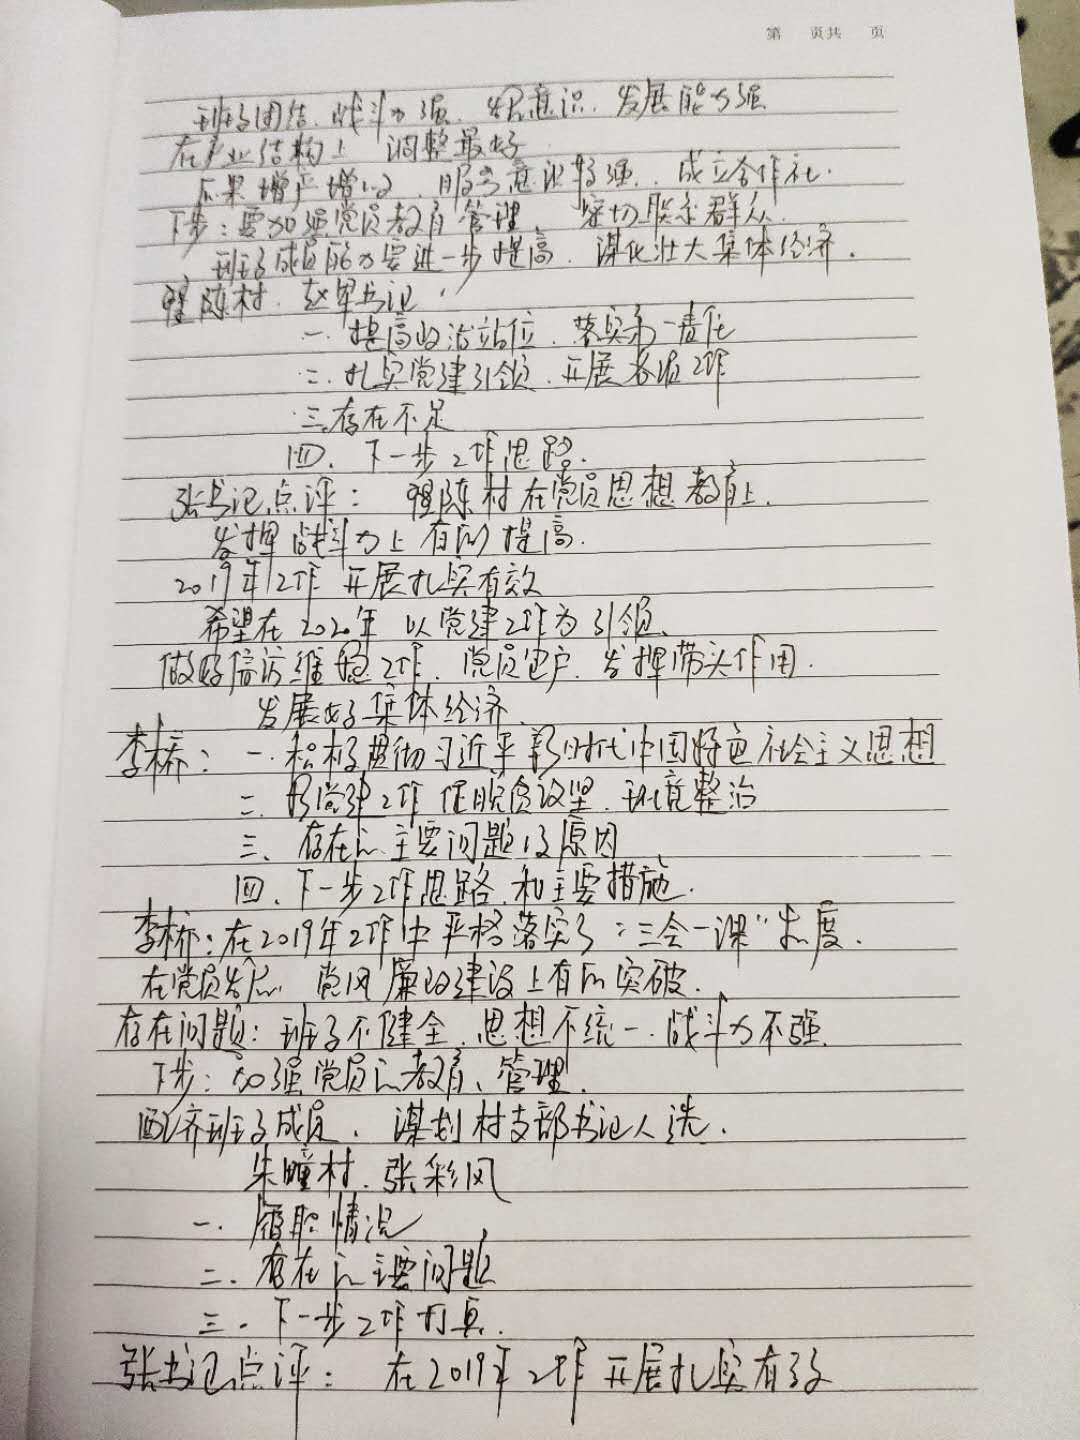 第 页共 页
班子团结、战斗力强、发展意识、发展能力强
在产业结构上 调整最好
瓜果增产增收、服务意识较强、成立合作社.
下步:要加强党员教育管理、密切联系群众.
班子成员能力要进一步提高、谋化壮大集体经济.
陈村、赵军书记
一、提高政治站位、落实第一责任
二、扎实党建引领、开展各项工作
三、存在不足
四、下一步工作思路.
张书记点评: 陈村在党员思想教育上.
发挥战斗力上有所提高.
2019年工作开展扎实有效
希望在2020年 以党建工作为引领、
做好信访维稳工作、党员包户、发挥带头作用.
发展好集体经济
李桥:一、积极贯彻习近平新时代中国特色社会主义思想
二、抓党建工作促脱贫攻坚、环境整治
三、存在的主要问题及原因
四、下一步工作思路和主要措施.
李桥:在2019年工作中严格落实了“三会一课”制度.
在党员发展 党风廉政建设上有所突破.
存在问题:班子不健全、思想不统一、战斗力不强.
下步:加强党员的教育、管理.
配齐班子成员、谋划村支部书记人选.
朱疃村、张彩风
一、履职情况
二、存在的主要问题
三、下一步工作打算.
张书记点评: 在2019年工作开展扎实有效